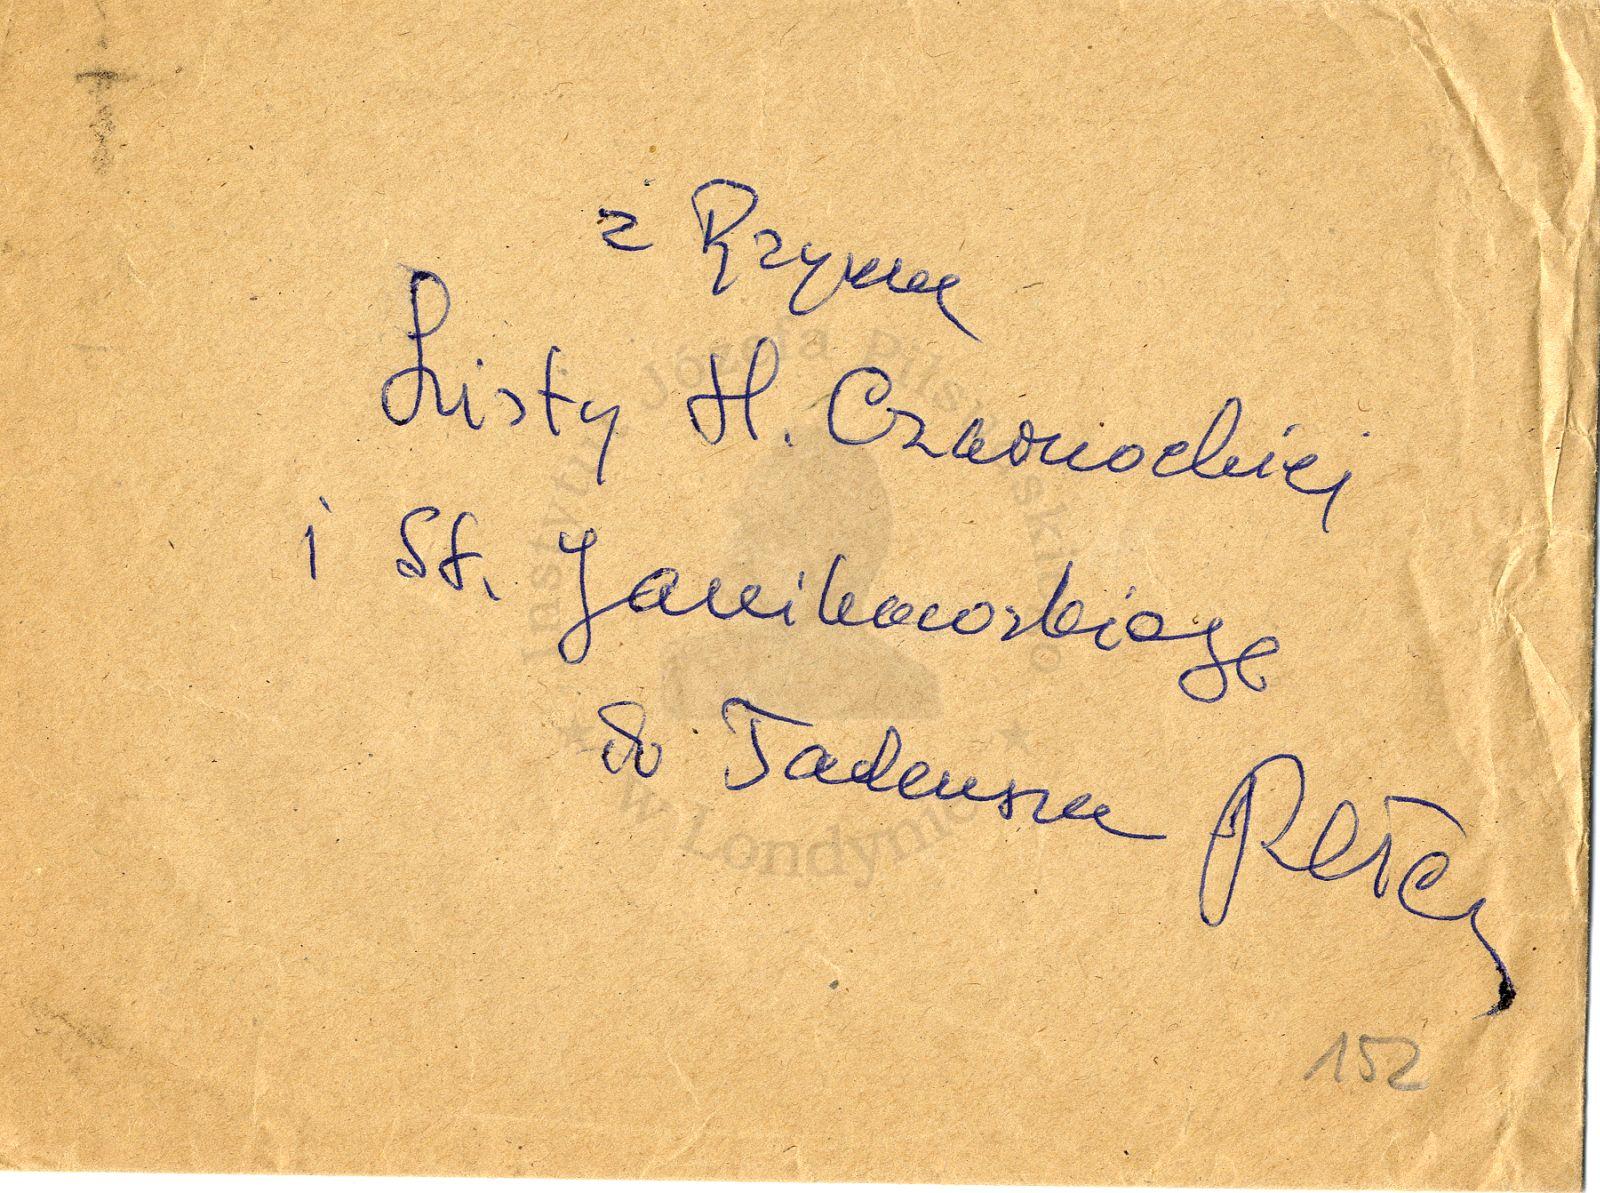 z Rzymu
Listy H. Czarnockiej
i St. Janikowskiego
do Tadeusza Pełczy
152
Instytut Józefa Piłsudskiego
★ w Londynie ★